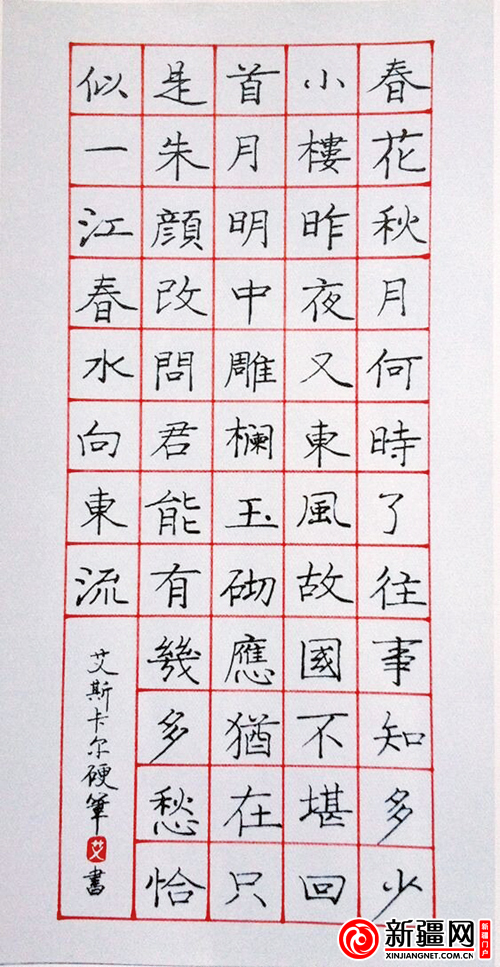 春花秋月何時了往事知多少
小樓昨夜又東風故國不堪回
首月明中雕欄玉砌應猶在只
是朱顏改問君能有幾多愁恰
似一江春水向東流
艾斯卡尔硬筆書
艾
新疆网
新疆门户
XINJIANGNET.COM.CN